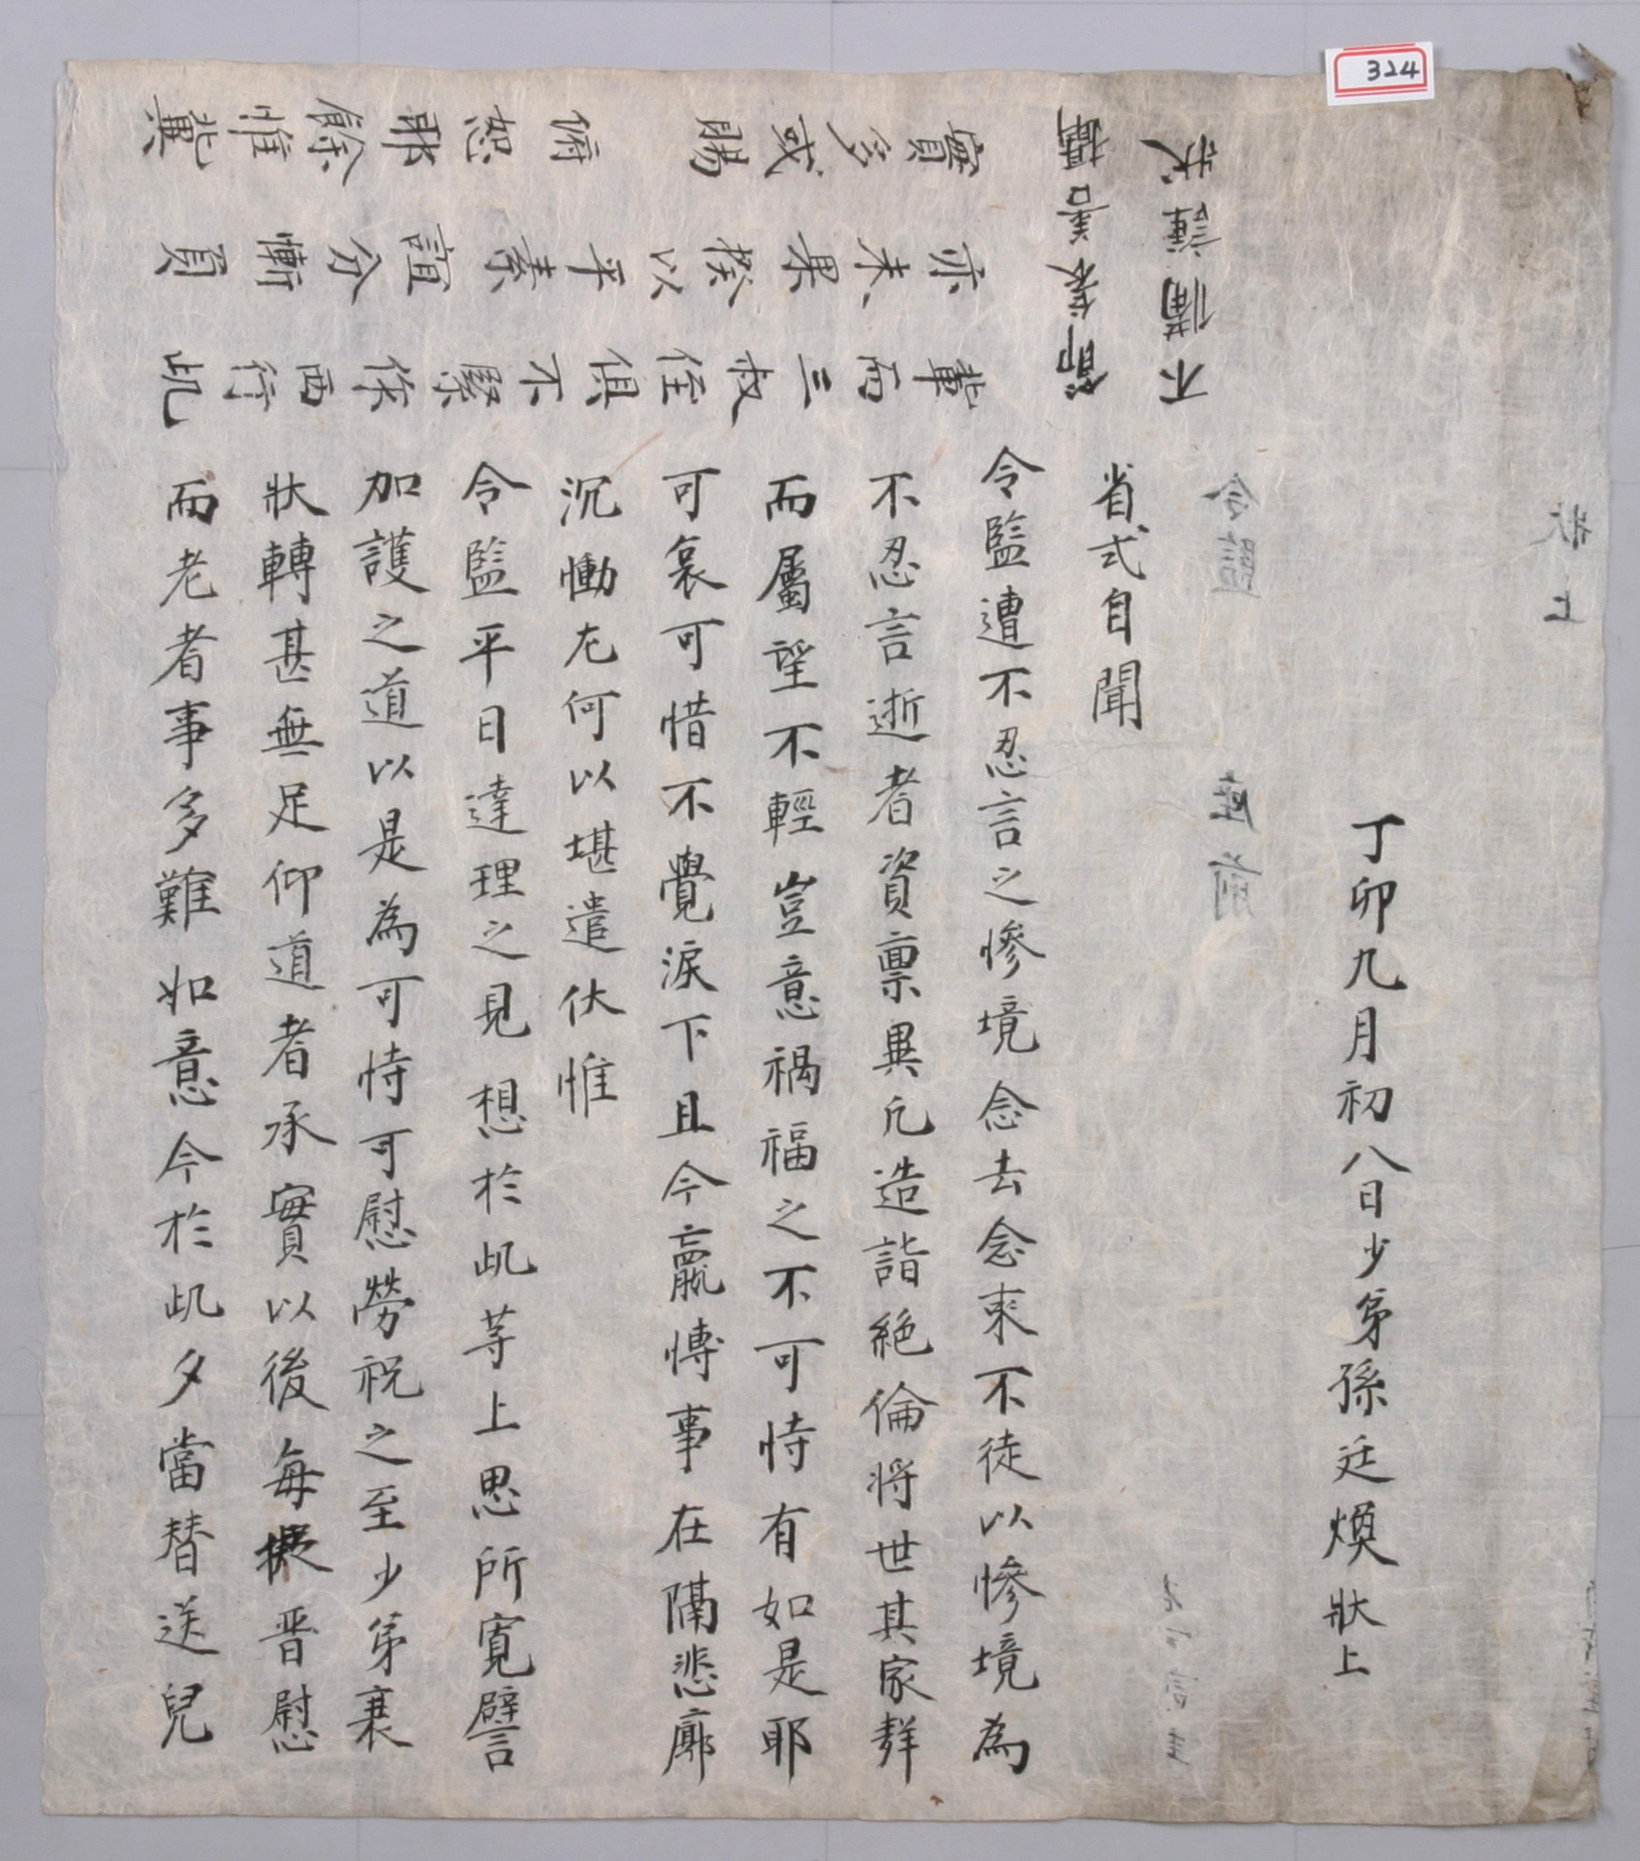 省式自聞
令監遭不忍言之慘境念去念來不徒以慘境為
不忍言逝者資禀異凡造詣絶倫將世其家群
而屬望不輕豈意禍福之不可恃有如是耶
可哀可惜不覺淚下且今羸愽事在隔悲廓
沉慟尤何以堪遣伏惟
令監平日達理之見想於此等上思所寬譬
加護之道以是為可恃可慰勞祝之至少弟衰
狀轉甚無足仰道者承實以後每擬晋慰
而老者事多難如意今於此夕當替送兒
輩而三叔侄俱不緊係西行此
亦未果揆以平素誼分慚負
實多或賜 俯恕耶餘惟冀
節哀善攝
不備謹狀
丁卯九月初八日少弟孫廷煥狀上
令監 座前
狀上
324